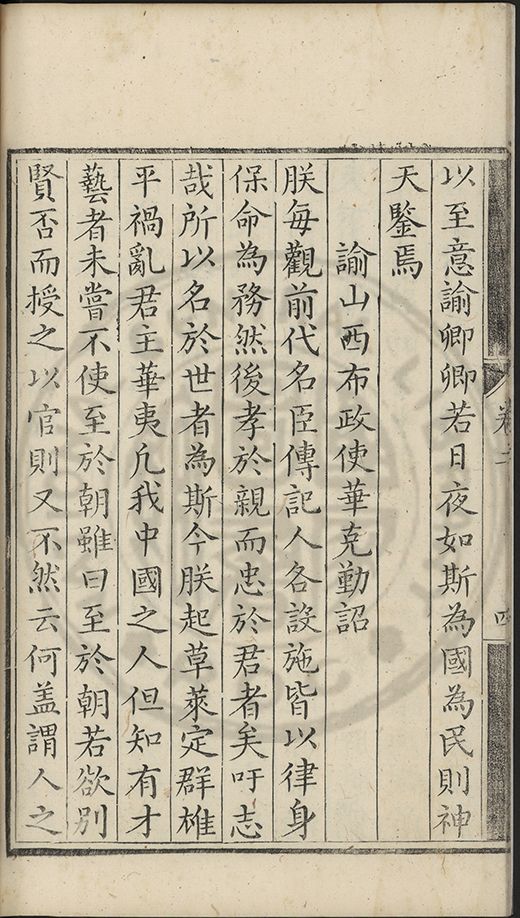 以至意諭卿卿若日夜如斯為國為民則神
天鑒焉
諭山西布政使華克勤詔
朕每觀前代名臣傳記人各設施皆以律身
保命為務然後孝於親而忠於君者矣吁志
哉所以名於世者為斯今朕起草萊定群雄
平禍亂君主華夷凢我中國之人但知有才
藝者未嘗不使至於朝雖曰至於朝若欲別
賢否而授之以官則又不然云何盖謂人之